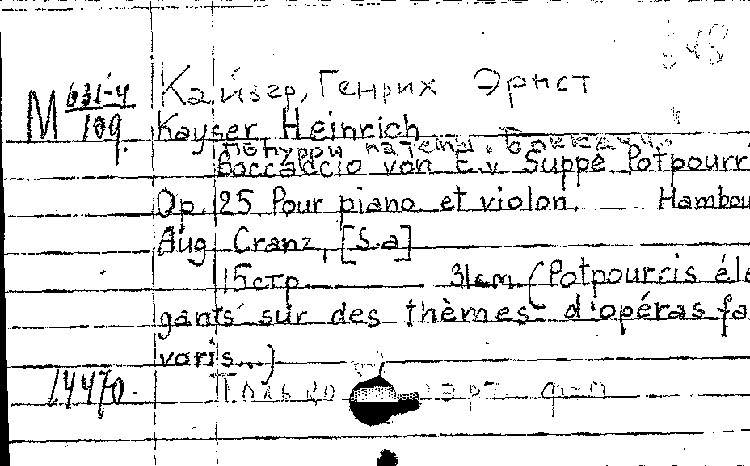 348
Кайзер, Генрих Эрнст
M 631-4/109.
Kayser Heinrich
Попурри на темы. Боккаччо
Boccaccio von E.v Suppé Potpourri
Op. 25 Pour piano et violon. Hambou
Aug. Cranz, [S.a]
15стр. 31cm (Potpourris élé
gants sur des thèmes d'opéras fa
voris...)
14470.